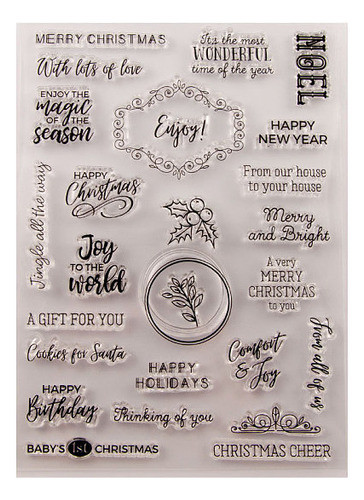 MERRY CHRISTMAS
It's the most
WONDERFUL
time of the year
NOEL
With lots of love
ENJOY THE
magic
OF THE
SEASON
Enjoy!
HAPPY
NEW YEAR
From our house
to your house
Jingle all the way
HAPPY
Christmas
Merry
and Bright
Joy
TO THE
world
A very
MERRY
CHRISTMAS
to you
A GIFT FOR YOU
Cookies for Santa
HAPPY
HOLIDAYS
Comfort
& Joy
from all of us
HAPPY
Birthday
Thinking of you
BABY'S 1st CHRISTMAS
CHRISTMAS CHEER